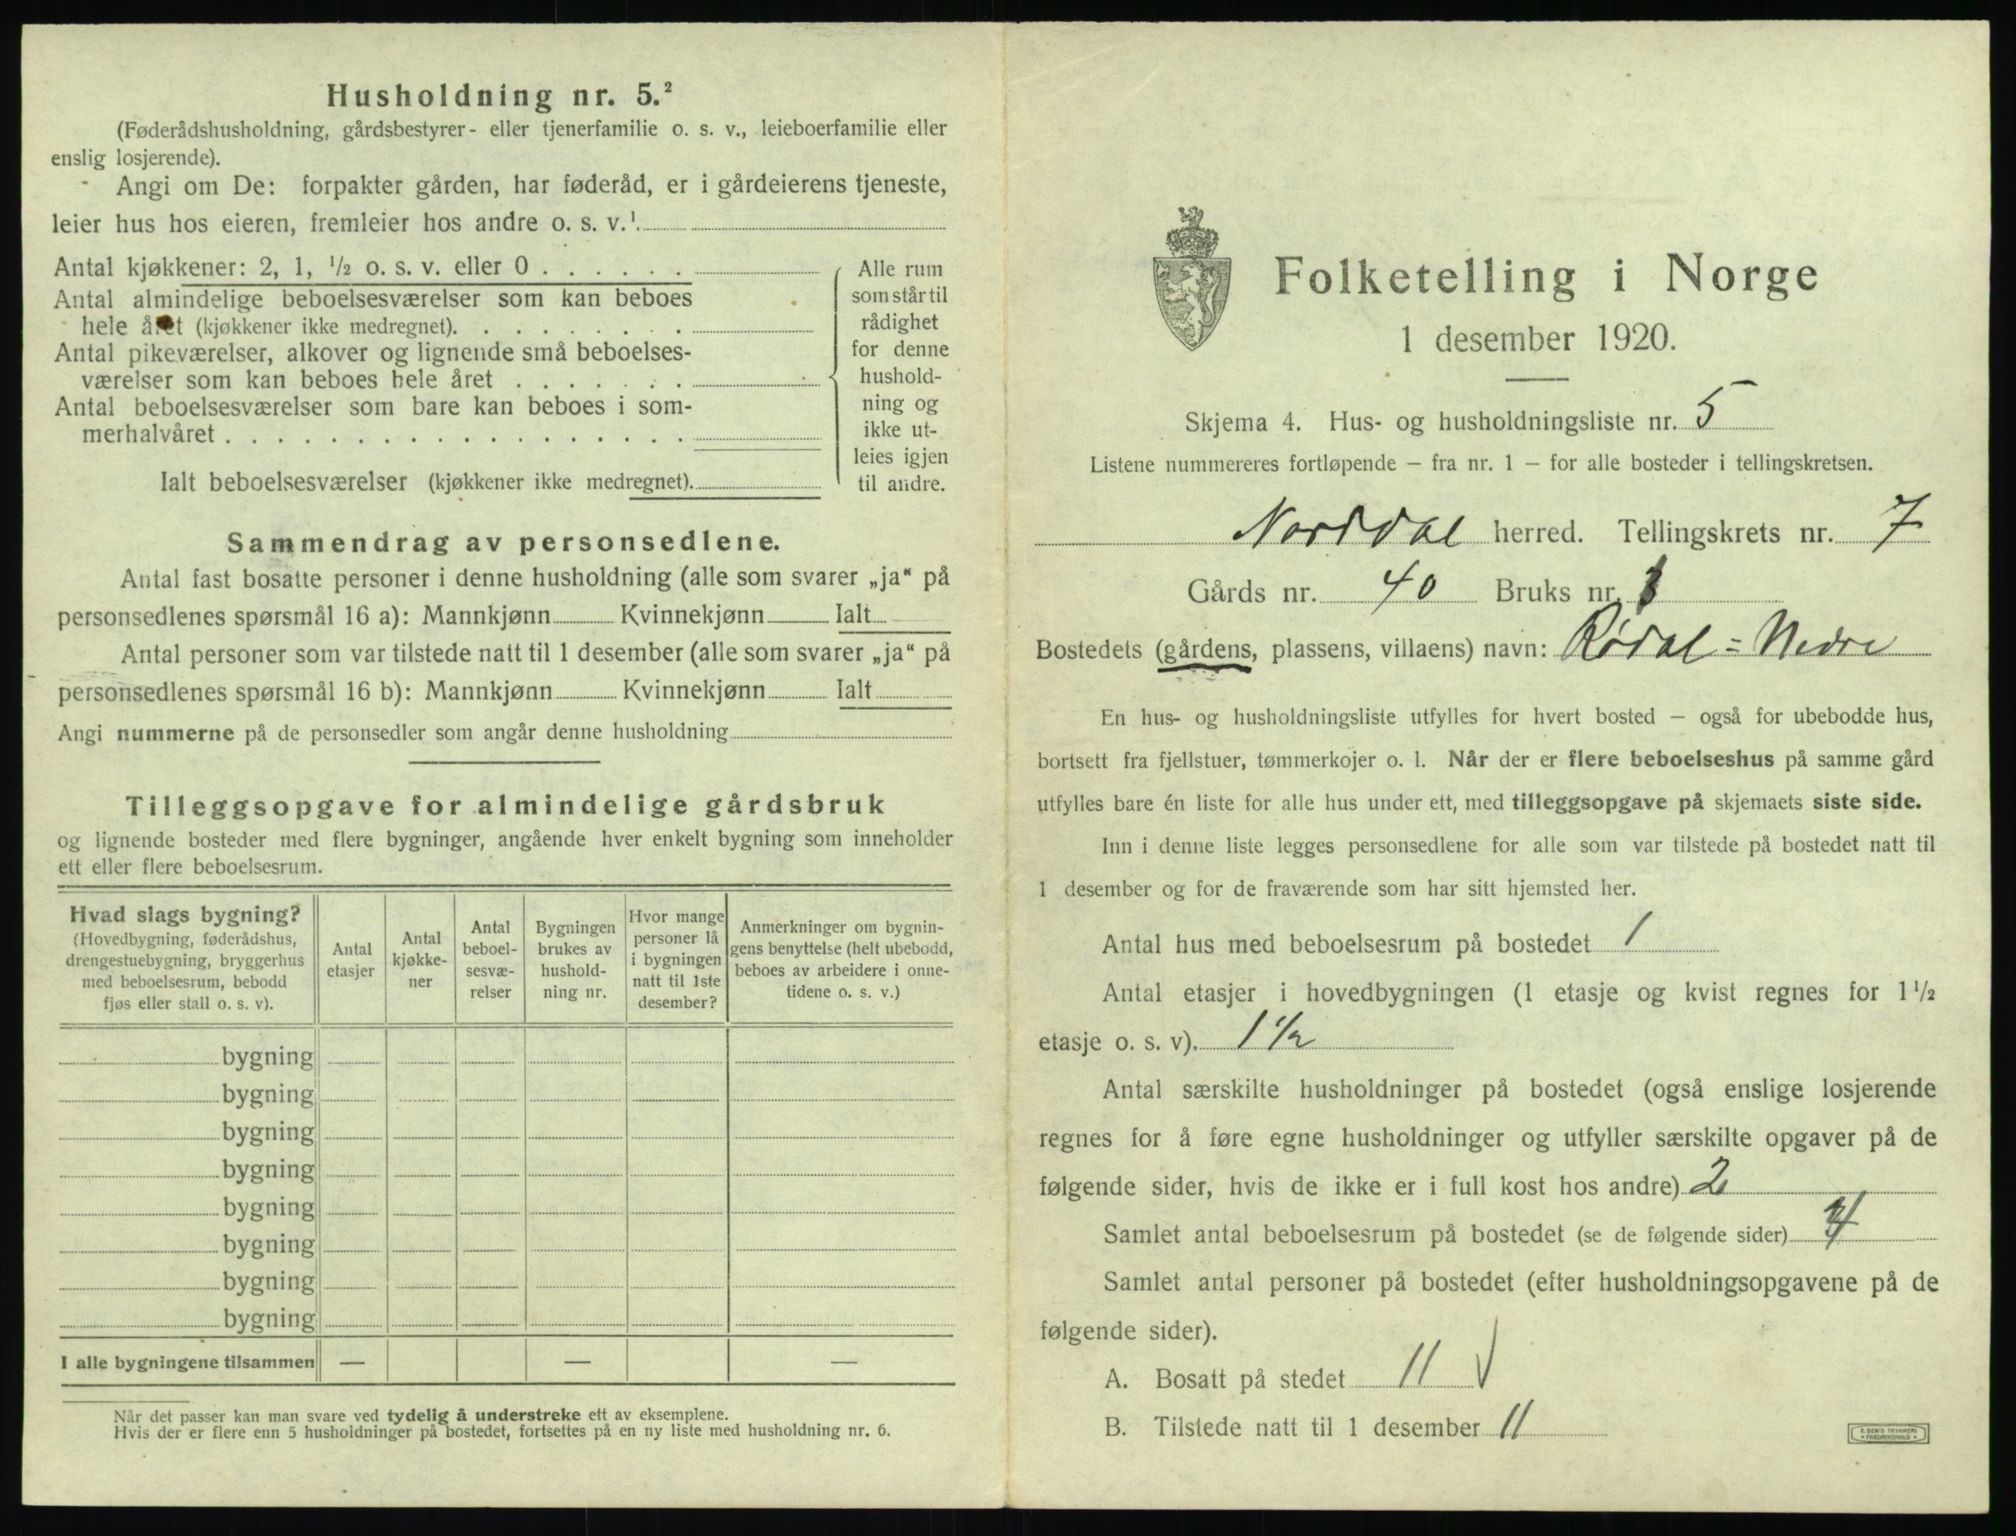 Husholdning nr. 5.²
(Føderådshusholdning, gårdsbestyrer- eller tjenerfamilie o. s. v., leieboerfamilie eller
enslig losjerende).
Angi om De: forpakter gården, har føderåd, er i gårdeierens tjeneste,
leier hus hos eieren, fremleier hos andre o. s. v.¹
Antal kjøkkener: 2, 1, ½ o. s. v. eller 0 . . . . . .
Antal almindelige beboelsesværelser som kan beboes
hele året (kjøkkener ikke medregnet). . . . . . . . .
Antal pikeværelser, alkover og lignende små beboelses-
værelser som kan beboes hele året . . . . . . .
Antal beboelsesværelser som bare kan beboes i som-
merhalvåret . . . . . . . . . . . . . . . . . .
Ialt beboelsesværelser (kjøkkener ikke medregnet).
Alle rum
som står til
rådighet
for denne
hushold-
ning og
ikke ut-
leies igjen
til andre.
Sammendrag av personsedlene.
Antal fast bosatte personer i denne husholdning (alle som svarer „ja“ på
personsedlenes spørsmål 16 a): Mannkjønn Kvinnekjønn Ialt
Antal personer som var tilstede natt til 1 desember (alle som svarer „ja“ på
personsedlenes spørsmål 16 b): Mannkjønn Kvinnekjønn Ialt
Angi nummerne på de personsedler som angår denne husholdning
Tilleggsopgave for almindelige gårdsbruk
og lignende bosteder med flere bygninger, angående hver enkelt bygning som inneholder
ett eller flere beboelsesrum.
Hvad slags bygning?
(Hovedbygning, føderådshus,
drengestuebygning, bryggerhus
med beboelsesrum, bebodd
fjøs eller stall o. s. v).
Antal
etasjer
Antal
kjøkke-
ner
Antal
beboel-
sesvæ-
relser
Bygningen
brukes av
hushold-
ning nr.
Hvor mange
personer lå
i bygningen
natt til 1ste
desember?
Anmerkninger om bygnin-
gens benyttelse (helt ubebodd,
beboes av arbeidere i onne-
tidene o. s. v.)
bygning
bygning
bygning
bygning
bygning
bygning
bygning
bygning
I alle bygningene tilsammen — — —
Når det passer kan man svare ved tydelig å understreke ett av eksemplene.
Hvis der er flere enn 5 husholdninger på bostedet, fortsettes på en ny liste med husholdning nr. 6.
Folketelling i Norge
1 desember 1920.
Skjema 4. Hus- og husholdningsliste nr. 5
Listene nummereres fortløpende – fra nr. 1 – for alle bosteder i tellingskretsen.
Norddal herred. Tellingskrets nr. 7
Gårds nr. 40 Bruks nr.
Bostedets (gårdens, plassens, villaens) navn: Rødal = Nedre
En hus- og husholdningsliste utfylles for hvert bosted – også for ubebodde hus,
bortsett fra fjellstuer, tømmerkojer o. l. Når der er flere beboelseshus på samme gård
utfylles bare én liste for alle hus under ett, med tilleggsopgave på skjemaets siste side.
Inn i denne liste legges personsedlene for alle som var tilstede på bostedet natt til
1 desember og for de fraværende som har sitt hjemsted her.
Antal hus med beboelsesrum på bostedet 1
Antal etasjer i hovedbygningen (1 etasje og kvist regnes for 1 ½
etasje o. s. v). 1 ½
Antal særskilte husholdninger på bostedet (også enslige losjerende
regnes for å føre egne husholdninger og utfyller særskilte opgaver på de
følgende sider, hvis de ikke er i full kost hos andre) 2
Samlet antal beboelsesrum på bostedet (se de følgende sider) 4
Samlet antal personer på bostedet (efter husholdningsopgavene på de
følgende sider).
A. Bosatt på stedet 11 √
B. Tilstede natt til 1 desember 11